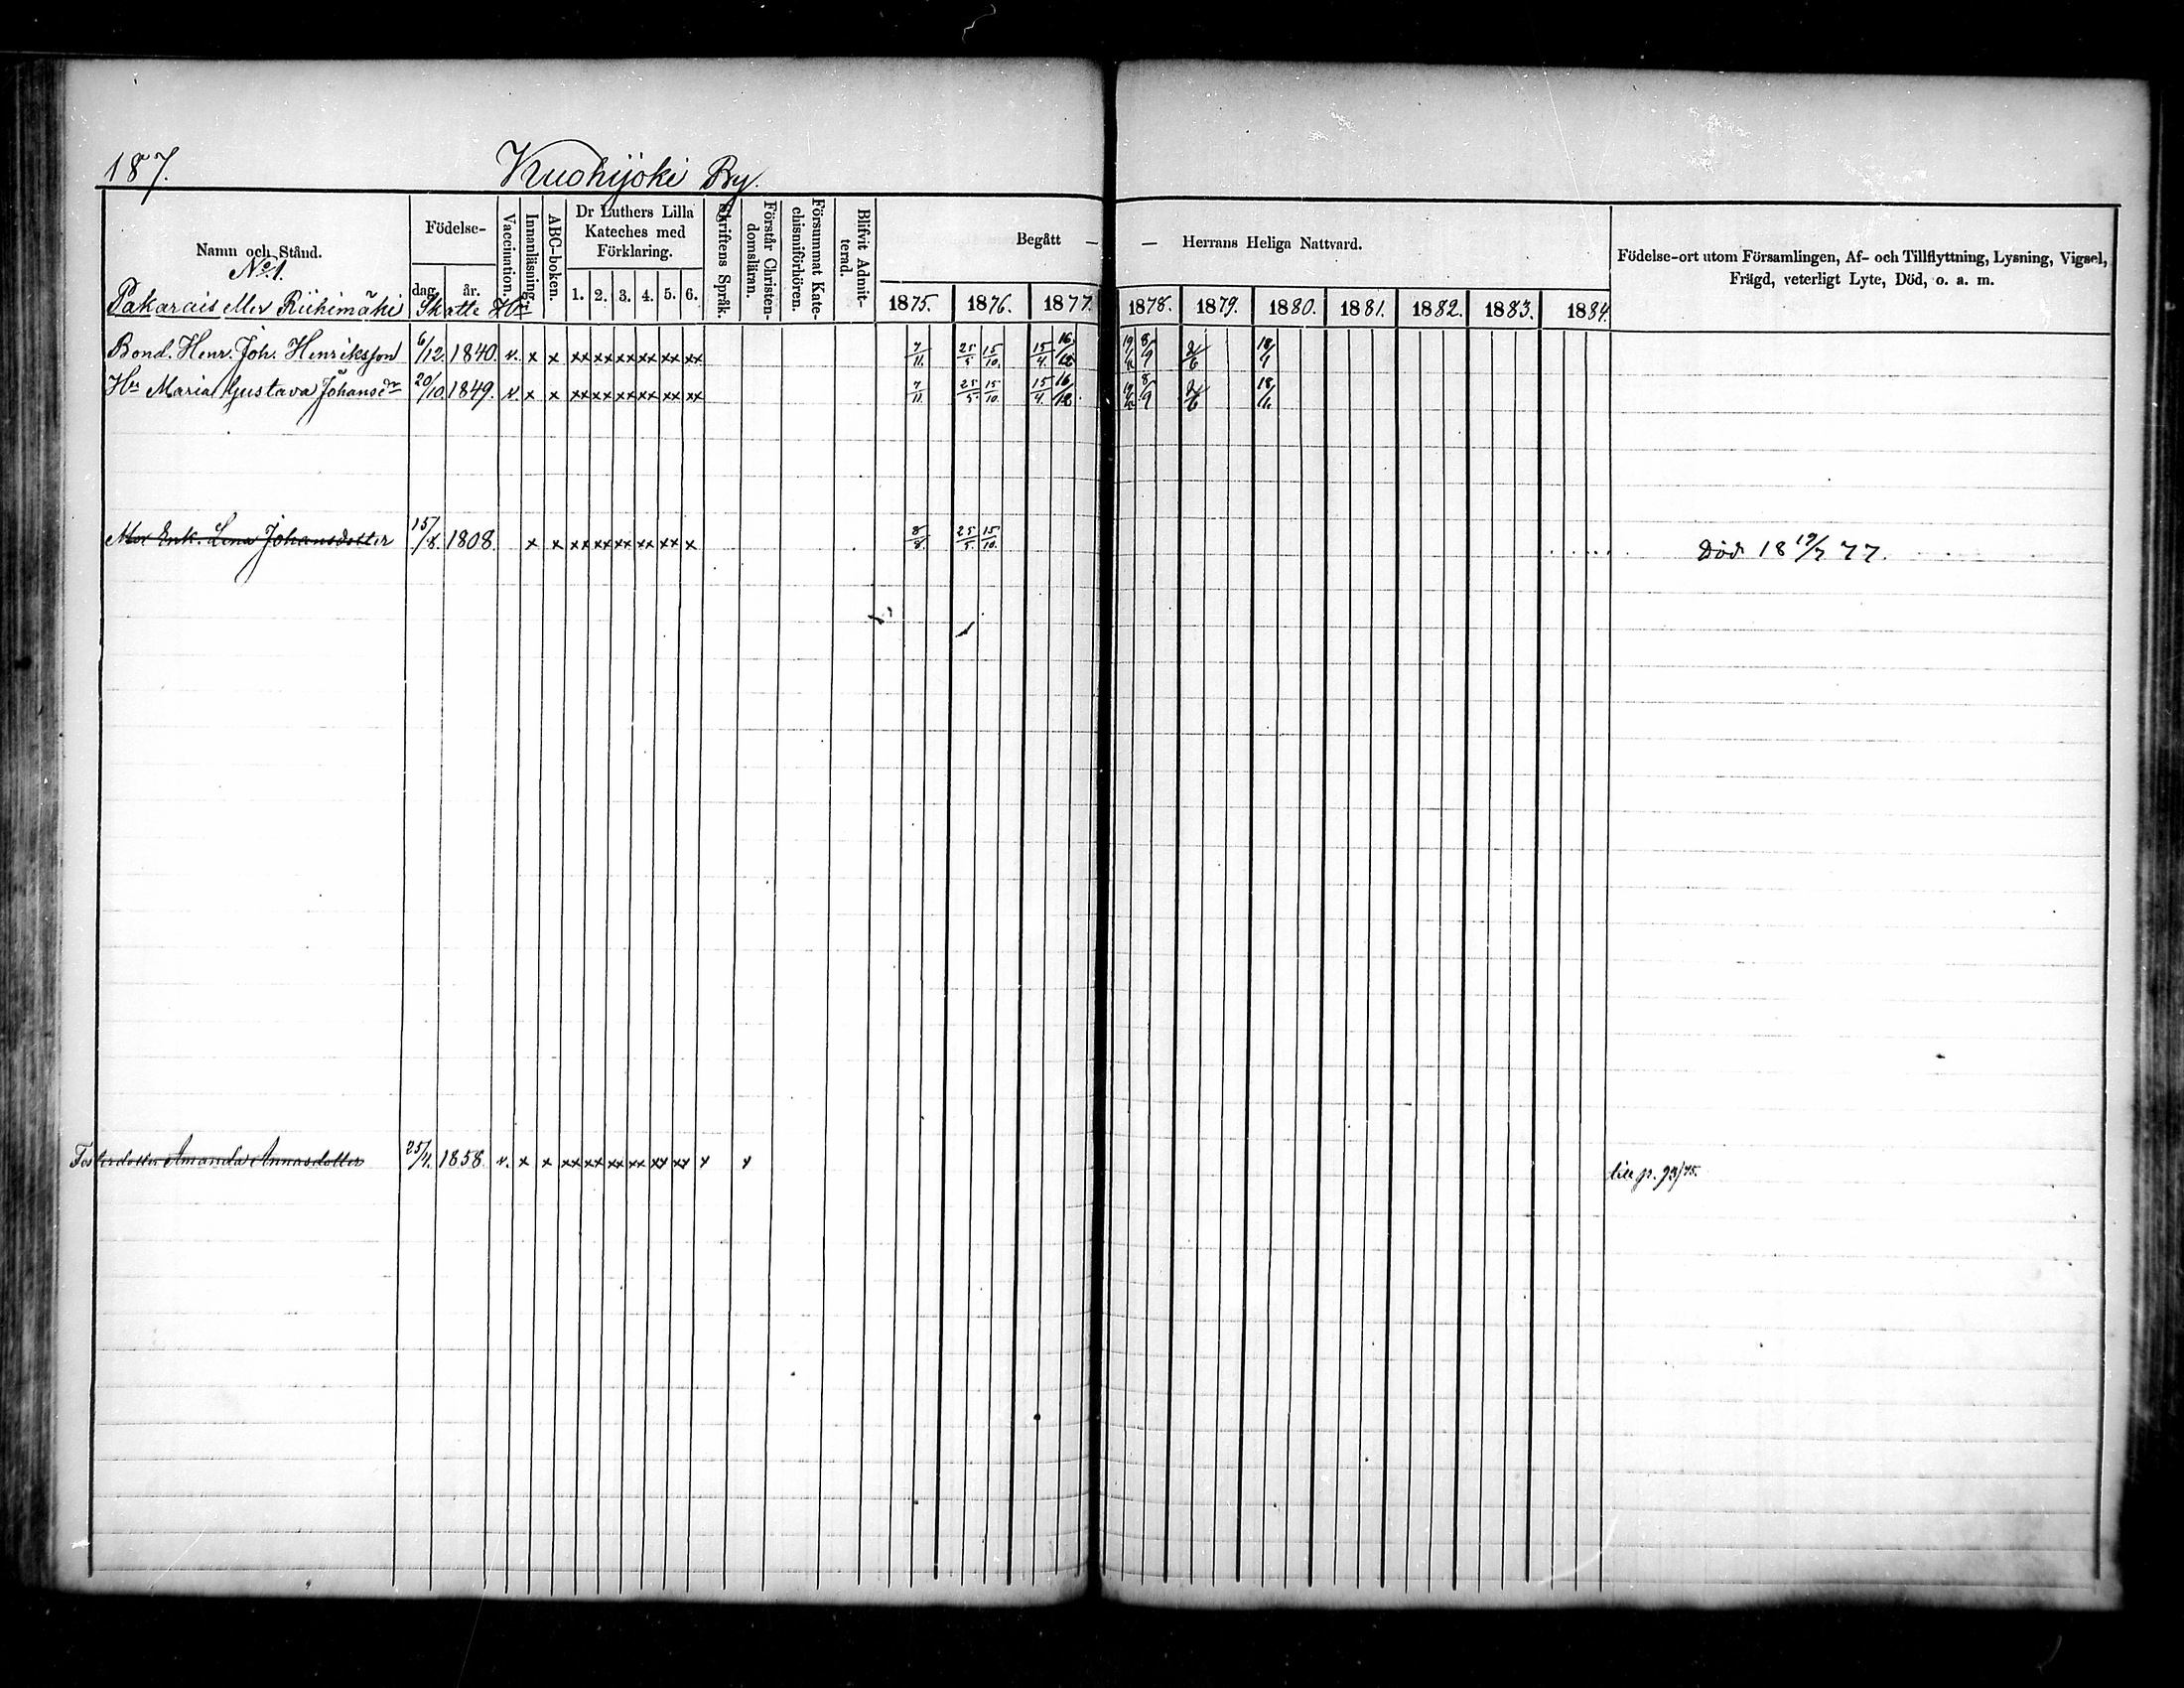 187.
Kuohijoki By.
Namn och Stånd.
Födelse-
dag. år.
Vaccination.
Innanläsning.
ABC-boken.
Dr Luthers Lilla
Kateches med
Förklaring.
1. 2. 3. 4. 5. 6.
Skriftens Språk.
Förstår Christen-
domsläran.
Försummat Kate-
chismiförhören.
Blifvit Admit-
terad.
Begått — — Herrans Heliga Nattvard.
1875. 1876. 1877. 1878. 1879. 1880. 1881. 1882. 1883. 1884.
Födelse-ort utom Församlingen, Af- och Tillflyttning, Lysning, Vigsel,
Frägd, veterligt Lyte, Död, o. a. m.
No 1.
Pakarais eller Riihimäki Skatte Hn
Bond. Henr. Joh. Henriksson 6/12. 1840. v. x x xx xx xx xx xx xx 7/11. 25/5 15/10. 15/4. 16/12 19/4 8/9 2/6 18/4
Hu Maria Gustava Johansdr 20/10. 1849. v. x x xx xx xx xx xx xx 7/11. 25/5. 15/10. 15/4. 16/12. 19/4 8/9 2/6 18/4
Mor Enk. Lena Johansdotter 15/8. 1808. x x xx xx xx xx xx x 8/8. 25/5. 15/10. Död 18 19/7 77.
Fosterdotter Amanda Annasdotter 25/4. 1858. v. x x xx xx xx xx xx xx x x till p. 93/75.